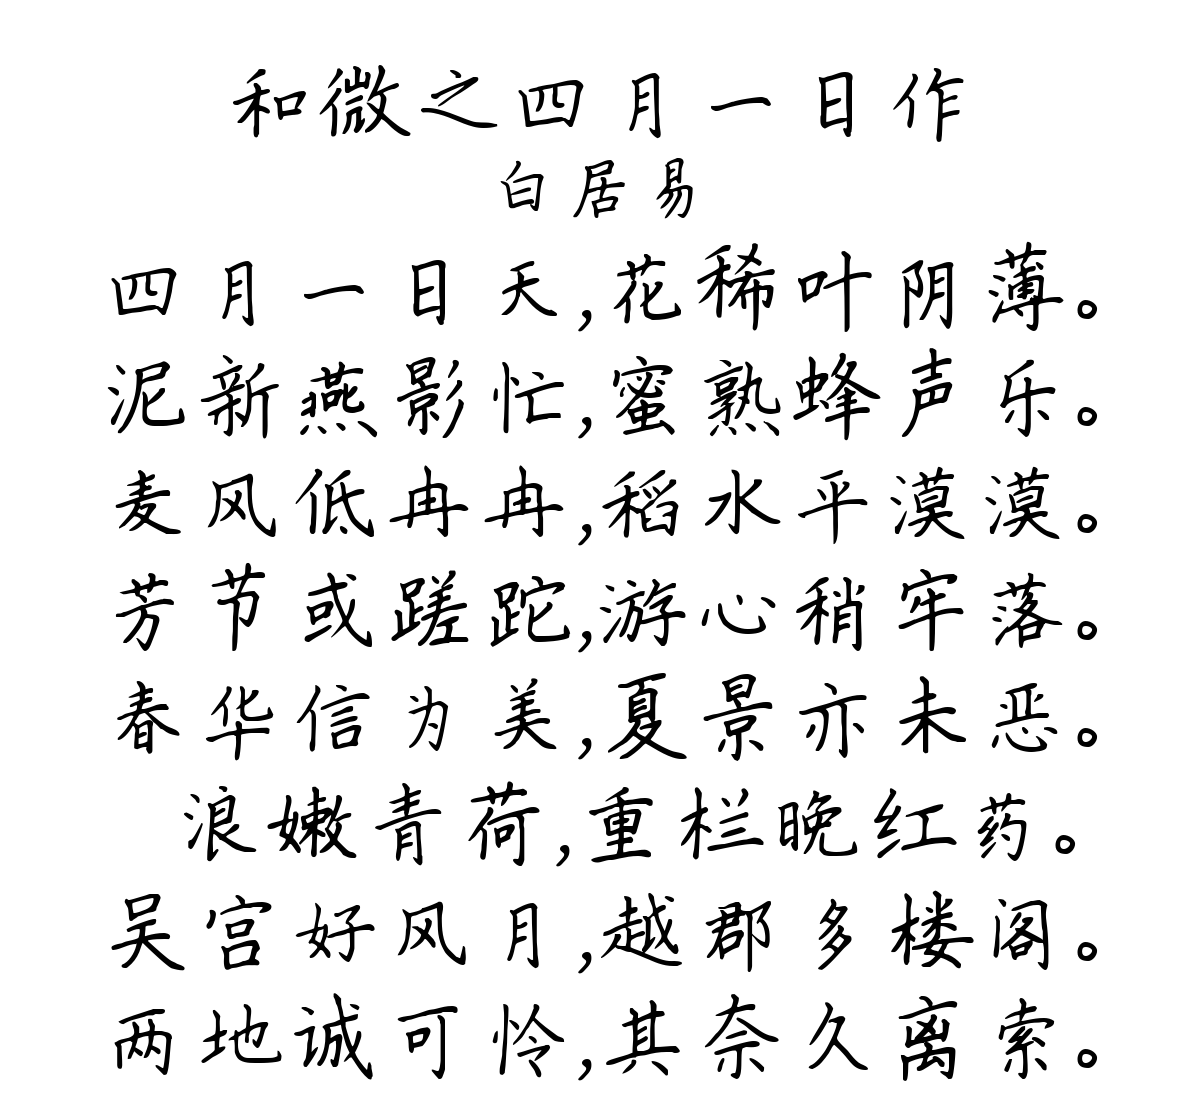 和微之四月一日作
白居易
四月一日天,花稀叶阴薄。
泥新燕影忙,蜜熟蜂声乐。
麦风低冉冉,稻水平漠漠。
芳节或蹉跎,游心稍牢落。
春华信为美,夏景亦未恶。
浪嫩青荷,重栏晚红药。
吴宫好风月,越郡多楼阁。
两地诚可怜,其奈久离索。